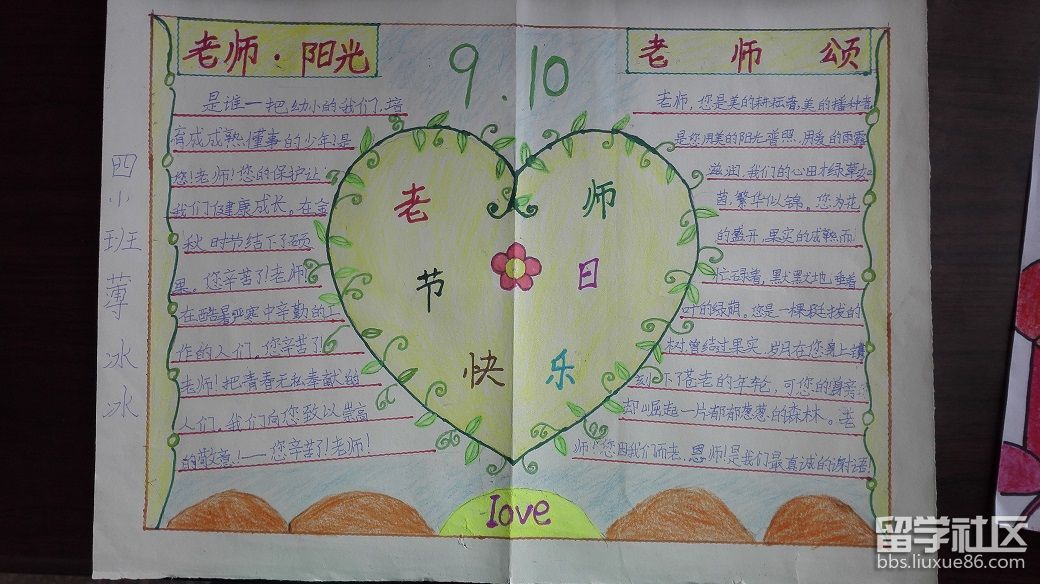 老师·阳光
9.10
老师颂
四小班薄冰冰
是谁一把幼小的我们,培
育成成熟懂事的少年!是
您!老师!您的保护让
我们健康成长。在金
秋时节结下了硕
果。您辛苦了!老师!
在酷暑严寒中辛勤的工
作的人们。您辛苦了!
老师!把青春无私奉献给
人们。我们向您致以崇高
的敬意!——您辛苦了!老师!
老师节日快乐
老师,您是美的耕耘者,美的播种者
是您用美的阳光普照,用爱的雨露
滋润,我们的心田才绿草如
茵,繁华似锦。您为花
的盛开,果实的成熟而
忙碌着,默默地垂着
叶的绿荫。您是一棵挺拔的
树曾结过果实,岁月在您身上镌
刻下了苍老的年轮,可您的身旁
却崛起一片郁郁葱葱的森林。老
师!您因我们而老,恩师!是我们最真诚的谢语!
love
留学社区
bbs.liuxue86.com